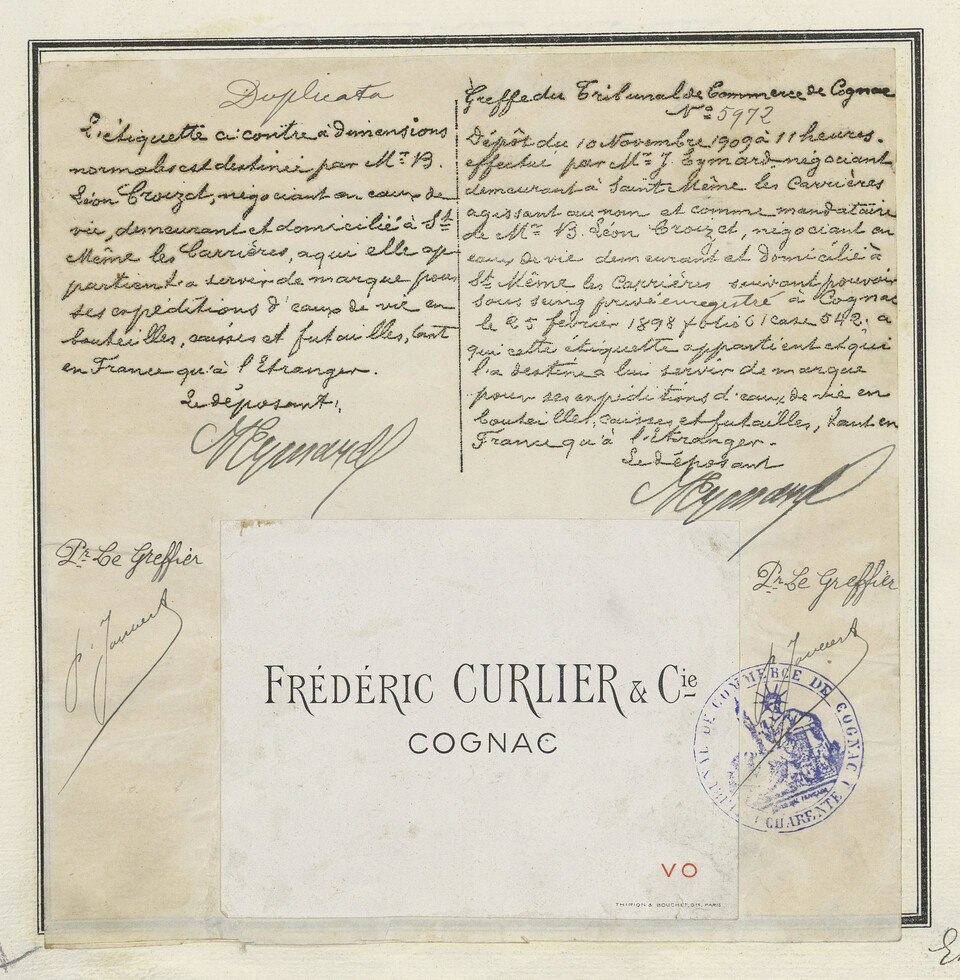 Duplicata
L'étiquette ci contre à dimensions
normales est destinée par Mr. B.
Léon Croizet, négociant en eaux de
vie, demeurant et domicilié à St
Même les Carrières, a qui elle ap
partient a servir de marque pour
ses expéditions d'eaux de vie en
bouteilles, caisses et futailles, tant
en France qu'à l'Etranger.
Le déposant,
Pr. Le Greffier
Greffe du Tribunal de Commerce de Cognac
No 5972
Dépôt du 10 Novembre 1909 à 11 heures.
effectué par Mr. J. Eymard négociant
demeurant à Saint Même les Carrières
agissant au nom et comme mandataire
de Mr. B. Léon Croizet, négociant en
eaux de vie demeurant et domicilié à
St Même les Carrières suivant pouvoir
sous seing privé enregistré à Cognac
le 25 février 1898 folio 61 case 542, a
qui cette étiquette appartient et qui
l'a destinée a lui servir de marque
pour ses expéditions d'eaux de vie en
bouteilles, caisses et futailles, tant en
France qu'à l'Etranger.
Le déposant
Pr. Le Greffier
FRÉDÉRIC CURLIER & Cie
COGNAC
VO
THIRION & BOUCHET, GR. PARIS
TRIBUNAL DE COMMERCE DE COGNAC
CHARENTE